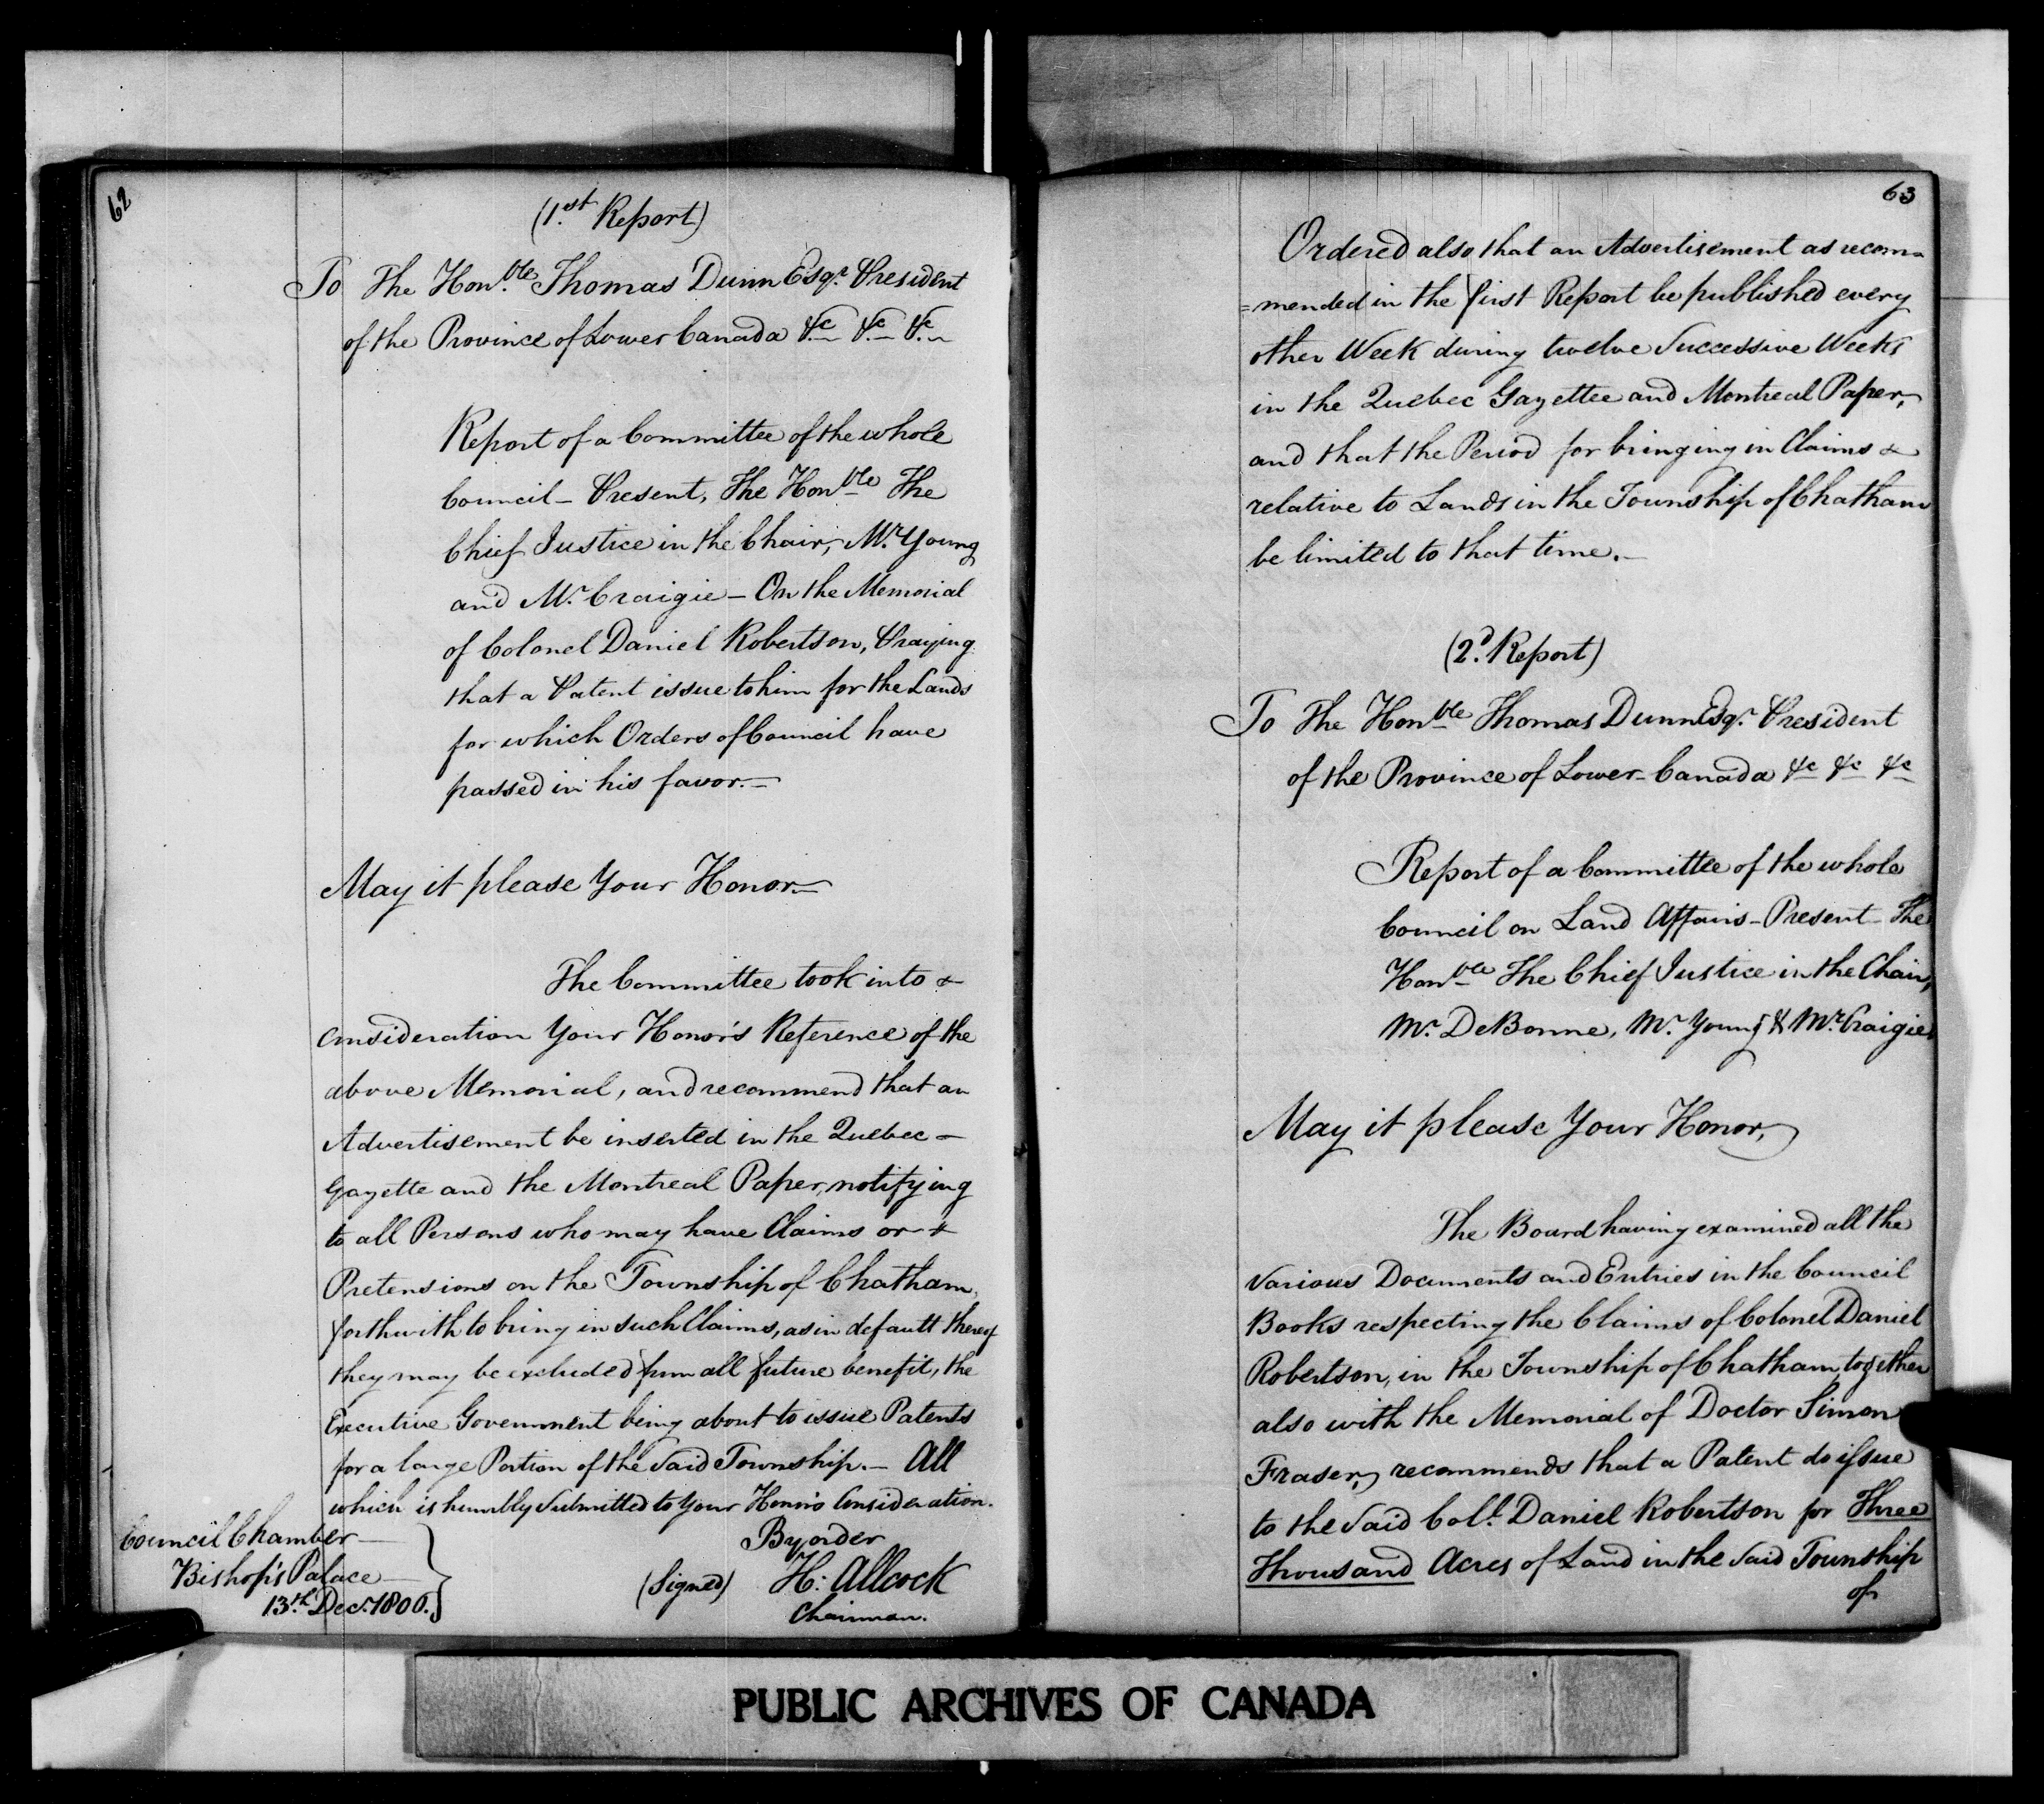 62
(1.st Report)
To The Hon.ble Thomas Dunn Esqr. President
of the Province of Lower Canada &c &c &c
Report of a Committee of the whole
Council - Present, The Honble The
Chief Justice in the Chair, Mr. Young
and Mr. Craigie - On the Memorial
of Colonel Daniel Robertson, Praying
that a Patent issue to him for the Lands
for which Orders of Council have
passed in his favor. -
May it please Your Honor -
The Committee took into
Consideration Your Honor's Reference of the
above Memorial, and recommend that an
Advertisement be inserted in the Quebec -
Gazette and the Montreal Paper, notifying
to all Persons who may have Claims or
Pretensions on the Township of Chatham,
forthwith to bring in such Claims, as in default thereof
they may be excluded from all future benefit, the
Executive Government being about to issue Patents
for a large Portion of the said Township. - All
which is humbly Submitted to Your Honor's Consideration.
Council Chamber
Bishop's Palace
13th. Decr. 1806.
By order
(Signed) H: Allcock
Chairman.
63
Ordered also that an Advertisement as recom=
=mended in the first Report be published every
other Week during twelve Successive Weeks
in the Quebec Gazettee and Montreal Paper,
and that the Period for bringing in Claims
relative to Lands in the Township of Chatham
be limited to that time. -
(2d. Report)
To The Honble Thomas Dunn Esqr. President
of the Province of Lower-Canada &c &c &c
Report of a Committee of the whole
Council on Land Affairs - Present - The
Honble The Chief Justice in the Chair,
Mr. DeBonne, Mr. Young & Mr. Craigie
May it please Your Honor,
The Board having examined all the
Various Documents and Entries in the Council
Books respecting the Claims of Colonel Daniel
Robertson, in the Township of Chatham, together
also with the Memorial of Doctor Simon
Fraser, recommends that a Patent do issue
to the said Coll. Daniel Robertson for Three
Thousand Acres of Land in the said Township
of
PUBLIC ARCHIVES OF CANADA